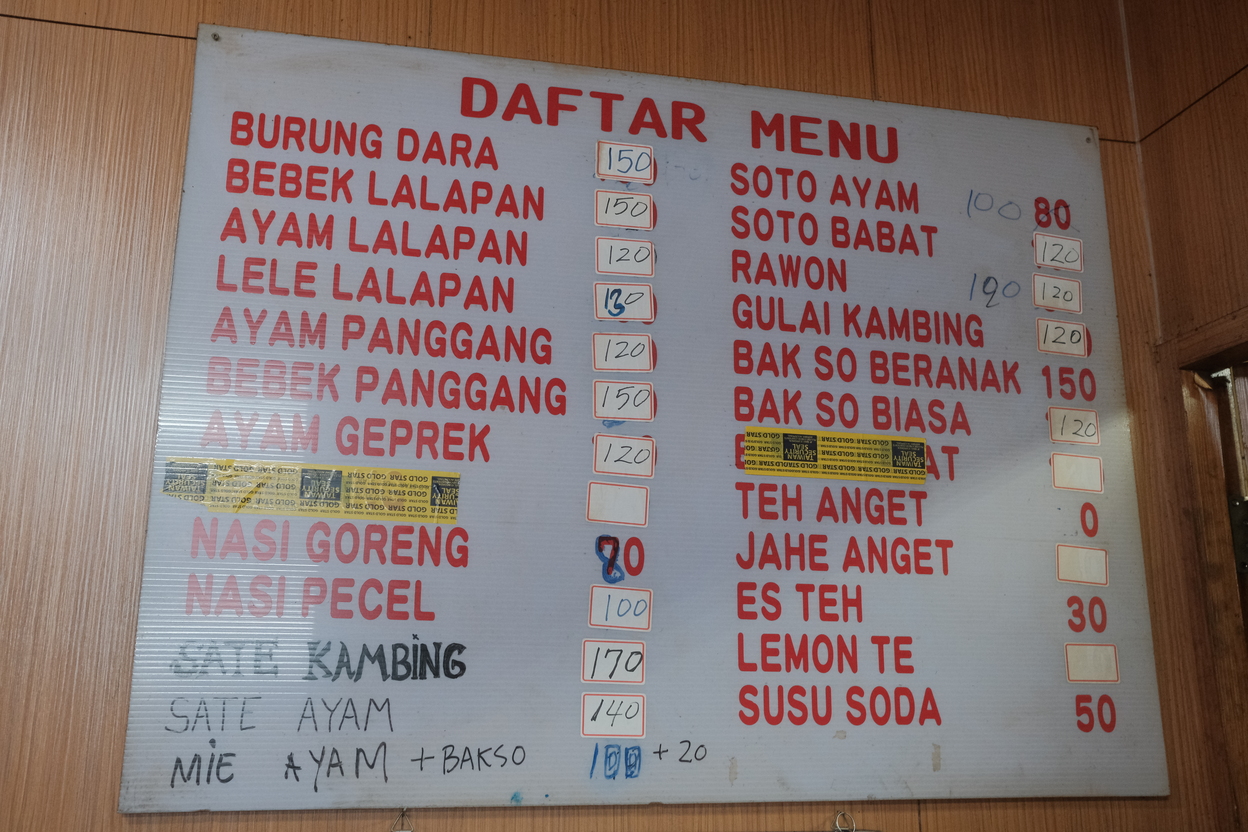 DAFTAR MENU
BURUNG DARA 150
BEBEK LALAPAN 150
AYAM LALAPAN 120
LELE LALAPAN 130
AYAM PANGGANG 120
BEBEK PANGGANG 150
AYAM GEPREK 120
GOLD STAR TAIWAN SECURITY SEAL GOLD STAR
NASI GORENG 80
NASI PECEL 100
SATE KAMBING 170
SATE AYAM 140
MIE AYAM +BAKSO 100 + 20
SOTO AYAM 100 80
SOTO BABAT 120
RAWON 120
GULAI KAMBING 120
BAK SO BERANAK 150
BAK SO BIASA 120
GOLD STAR TAIWAN SECURITY SEAL GOLD STAR TAIWAN SECURITY SEAL AT
TEH ANGET 0
JAHE ANGET
ES TEH 30
LEMON TE
SUSU SODA 50